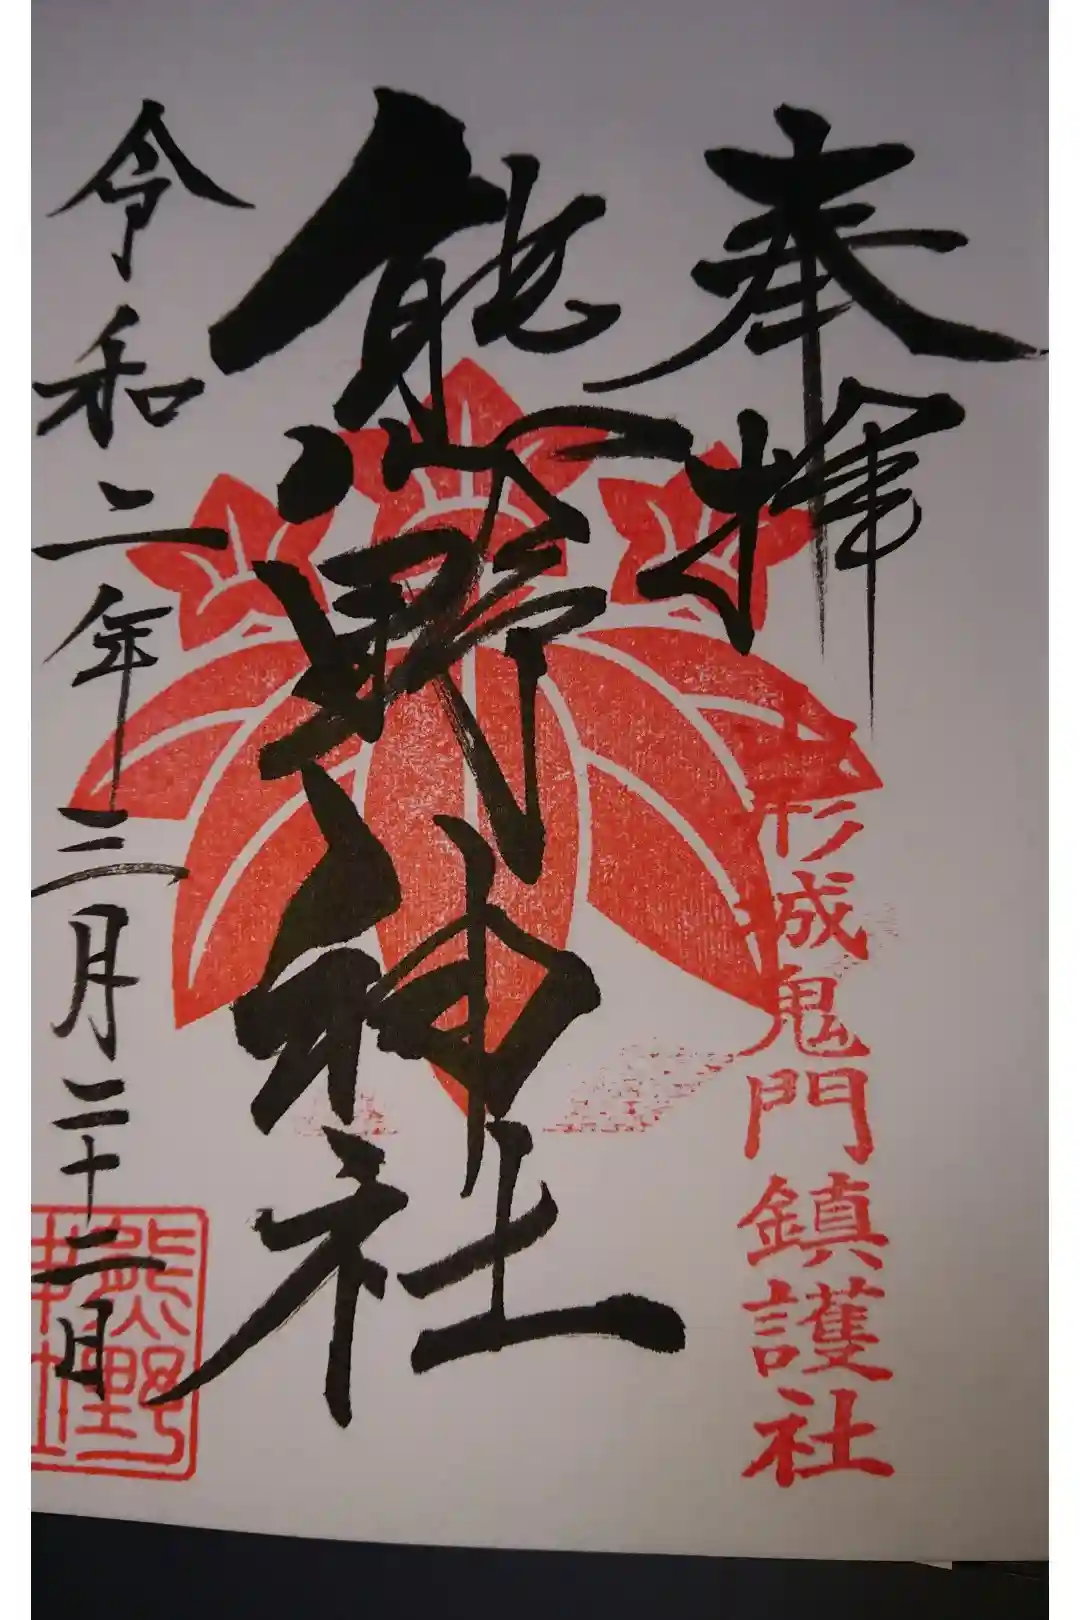 奉拝
山形城鬼門鎮護社
熊野神社
令和二年三月二十二日
熊野神社